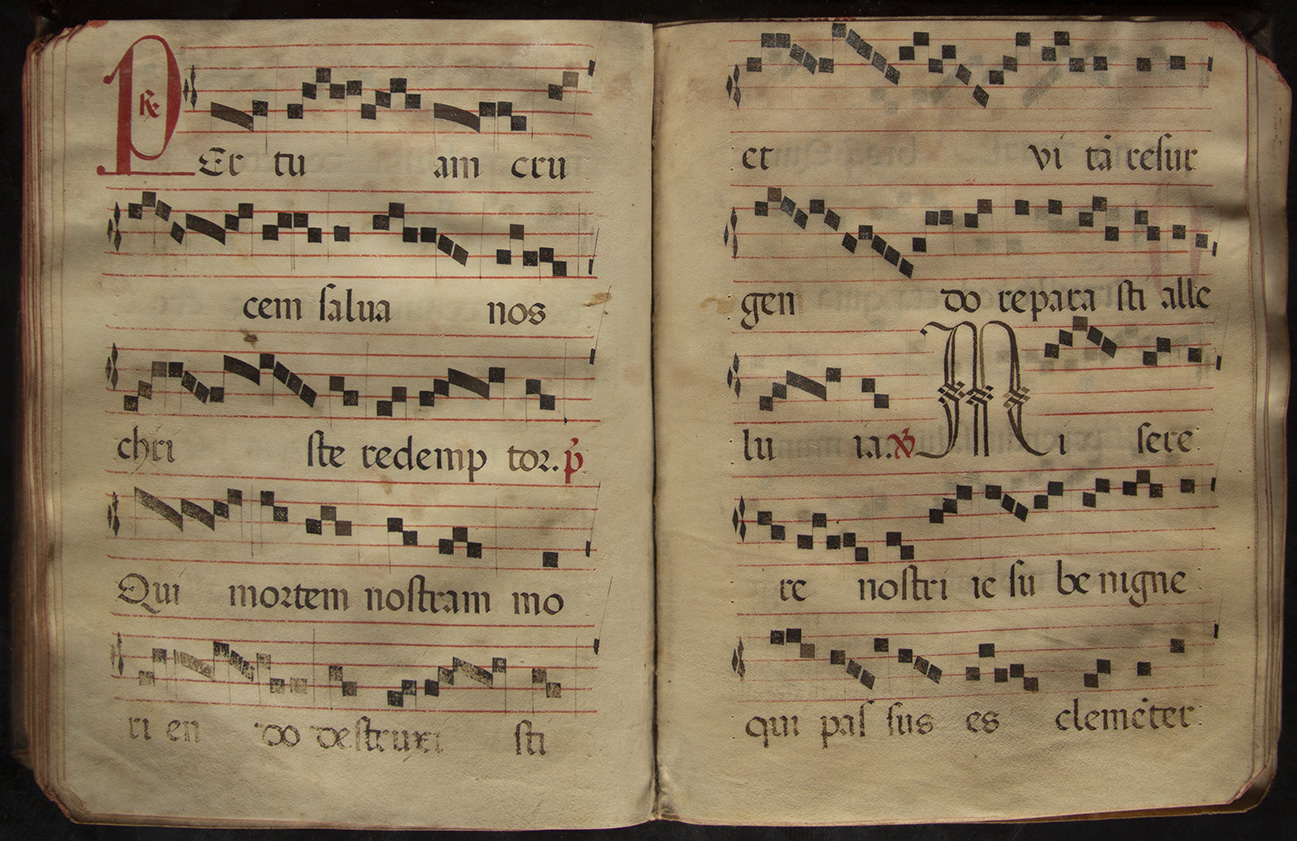 PEr tu am cru
cem salua nos
chri ste redemp tor. p̄
Qui mortem nostram mo
ri en do destruxi sti
et vi tā resur
gen do repara sti alle
lu ia. Mi sere
re nostri ie su be nigne
qui pas sus es clemēter